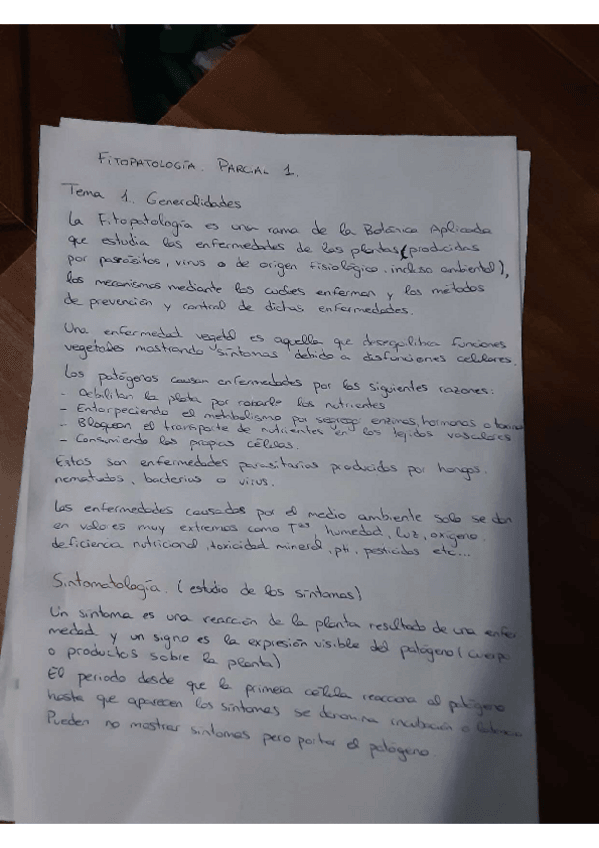 FITOPATOLOGÍA. PARCIAL 1.
Tema 1. Generalidades
La Fitopatología es una rama de la Botánica Aplicada
que estudia las enfermedades de las plantas (producidas
por parásitos, virus o de origen fisiológico, incluso ambiental),
los mecanismos mediante los cuales enferman y los métodos
de prevención y control de dichas enfermedades.
Una enfermedad vegetal es aquella que funciones
vegetales mostrando síntomas debido a disfunciones celulares.
Los patógenos causan enfermedades por las siguientes razones:
- Debilitan la plata por robarle los nutrientes
- Entorpeciendo el metabolismo por segregar enzimas, hormonas o
- Bloquean el transporte de nutrientes en los tejidos vasculares
- Consumiendo las propias células.
Estas son enfermedades parasitarias producidas por hongos,
nematodos, bacterias o virus.
Las enfermedades causadas por el medio ambiente solo se dan
en valores muy extremos como Tas humedad, luz, oxígeno,
deficiencia nutricional, toxicidad mineral, pH, pesticidas etc...
Sintomatología. (estudio de los síntomas)
Un síntoma es una reacción de la planta resultado de una enfer
medad y un signo es la expresión visible del patógeno (cuerpo
o productos sobre la planta)
El periodo desde que la primera célula reacciona al patógeno
hasta que aparecen los síntomas se denomina incubación o latencia
Pueden no mostrar síntomas pero portar el patógeno.